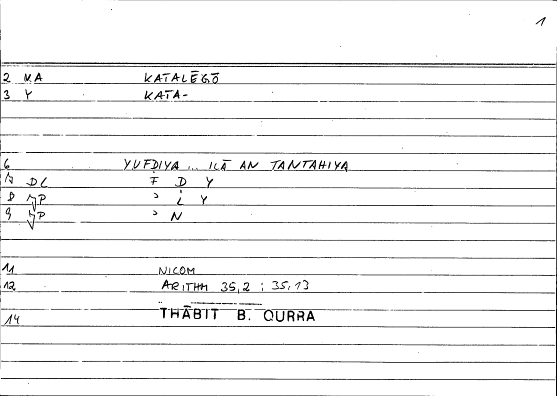 1
2 V.A KATALĒGŌ
3 Y KATA-
6 YUFḌIYA ... ILĀ AN TANTAHIYA
DL F Ḍ Y
D P ʾ L Y
9 P ʾ N
11 NICOM
12 ARITHM 35,2 : 35,13
14 THĀBIT B. QURRA